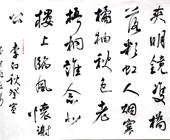 夾明鏡雙橋
落彩虹人烟寒
橘柚秋色老
梧桐誰念北
樓上臨風懷謝
公 李白秋登宣